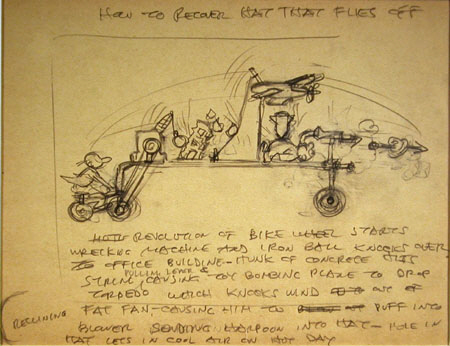 HOW TO RECOVER HAT THAT FLIES OFF
REVOLUTION OF BIKE WHEEL STARTS
WRECKING MACHINE AND IRON BALL KNOCKS OVER
OFFICE BUILDING - HUNK OF CONCRETE HITS
PULLING LEVER &
STRING CAUSING TOY BOMBING PLANE TO DROP
TORPEDO WHICH KNOCKS WIND OUT OF
FAT FAN - CAUSING HIM TO PUFF INTO
RECLINING
BLOWER SENDING HARPOON INTO HAT - HOLE IN
HAT LETS IN COOL AIR ON HOT DAY